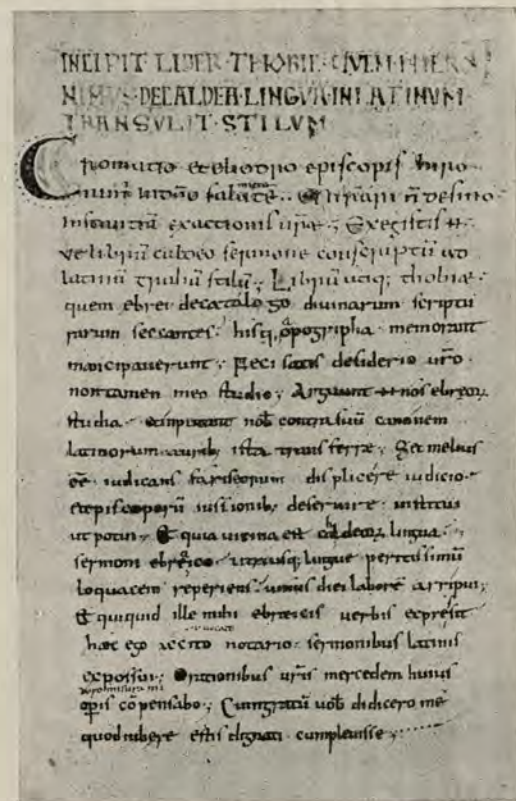 INCIPIT LIBER THOBIE QVEM HIERO
NIMVS DECALDEA LINGVA INLATINVM
TRANSVLIT STILVM
Cromatio et eliodoro episcopis
salutē. Mirari n̄ desino
exactionis ur̄æ; Exegistis
librum caldeo sermone conscriptū ad
latinū stilū; Librū utiq; thobiæ
quem ebrei decatalogo divinarum scriptu
rarum secantes. his q̨ apogripha memorant
mancipaverunt; Feci satis desiderio ur̄o
non tamen meo studio; Arguunt nos ebreoꝝ
studia. et inputant nob̄ contra suū canonem
latinorum aurib; ista transferræ. Set melius
eē iudicans fariseorum displicere iudicio.
et episcoporū iussionib; deservire. institi
ut potui; Et quia vicina est caldeoꝝ lingua
sermoni ebreico. utriusq; lingue peritissimū
loquacem reperiens. unius diei laborē arripui;
Et quiquid ille mihi ebreicis verbis expressit
hæc ego accito notario. sermonibus latinis
expossui; Orationibus ur̄is mercedem huius
opr̄is cōpensabo; Cum gratū uob̄ didicero me
quod iubere estis dignati cumplevisse;